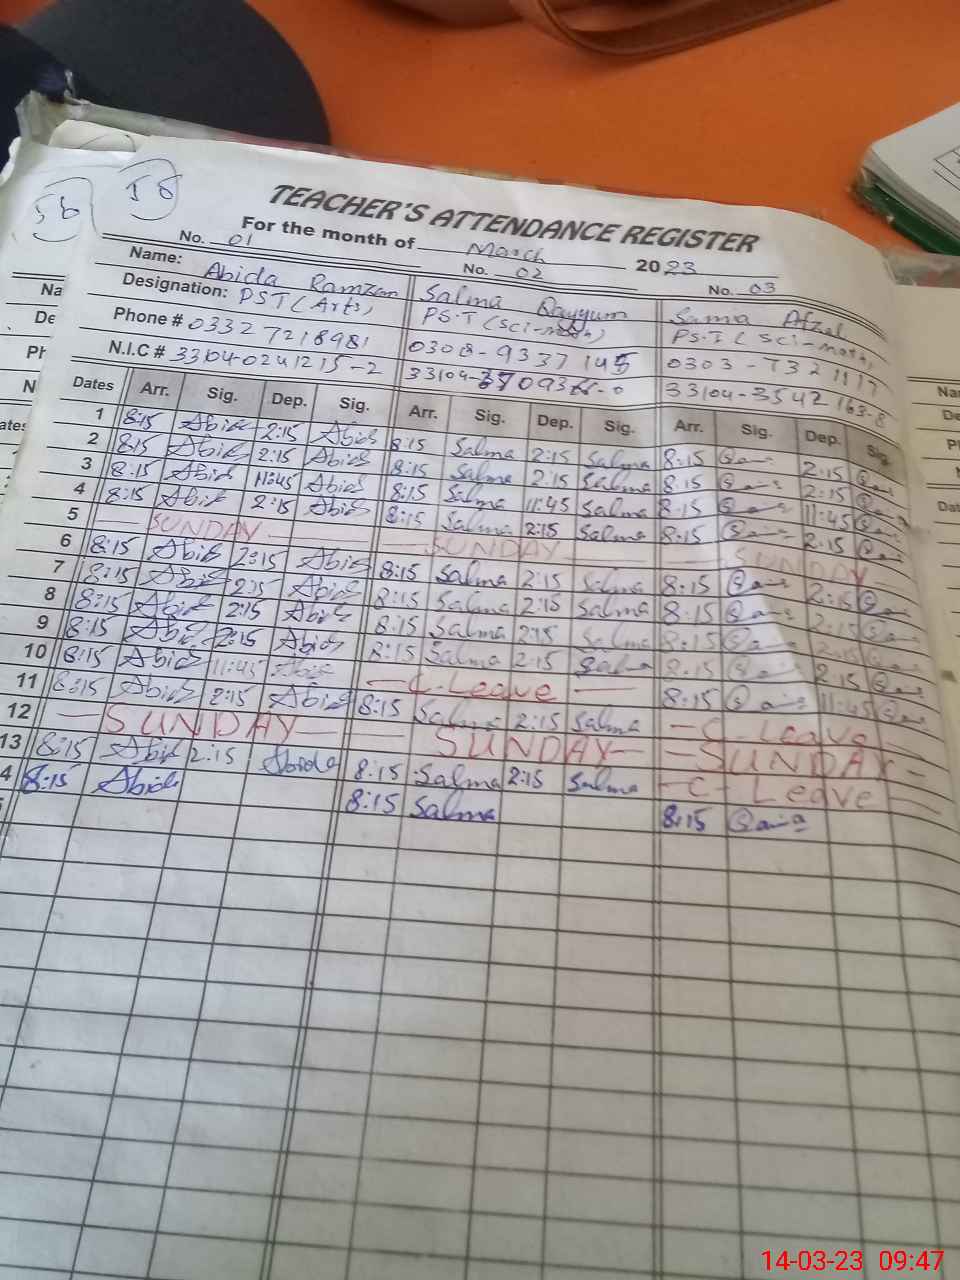 56 56
TEACHER'S ATTENDANCE REGISTER
For the month of March 2023
No. 01 No. 02 No. 03
Name: Abida Ramzan Salma Qayyum Samia Afzal
Designation: PST (Arts) PST (sci-math) PST (sci-math)
Phone # 0332 7218981 0308-9337145 0303-7321117
N.I.C # 33104-0241215-2 33104-3542163-8
Dates Arr. Sig. Dep. Sig. Arr. Sig. Dep. Sig. Arr. Sig. Dep. Sig.
1 8:15 Abida 2:15 Abida 8:15 Salma 2:15 Salma 8:15 2:15
2 8:15 Abida 2:15 Abida 8:15 Salma 2:15 Salma 8:15 2:15
3 8:15 Abida 11:45 Abida 8:15 Salma 11:45 Salma 8:15 11:45
4 8:15 Abida 2:15 Abida 8:15 Salma 2:15 Salma 8:15 2:15
5 SUNDAY SUNDAY SUNDAY
6 8:15 Abida 2:15 Abida 8:15 Salma 2:15 Salma 8:15 2:15
7 8:15 Abida 2:15 Abida 8:15 Salma 2:15 Salma 8:15 2:15
8 8:15 Abida 2:15 Abida 8:15 Salma 2:15 Salma 8:15 2:15
9 8:15 Abida 2:15 Abida 8:15 Salma 2:15 Salma 8:15 2:15
10 8:15 Abida 11:45 Abida C-Leave 8:15 11:45
11 8:15 Abida 2:15 Abida 8:15 Salma 2:15 Salma C-Leave
12 SUNDAY SUNDAY SUNDAY
13 8:15 Abida 2:15 Abida 8:15 Salma 2:15 Salma C-Leave
4 8:15 Abida 8:15 Salma 8:15
14-03-23 09:47